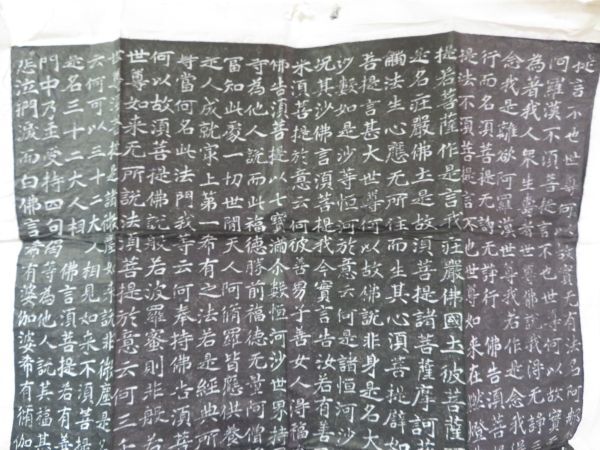 提言不也世尊何以故實无有法名阿那
阿羅漢不須菩提言不也世尊何以故實
為著我人眾生壽者世尊佛說我得无諍三
念我是離欲阿羅漢世尊我若作是念我得
行而名須菩提无諍无諍行佛告須菩
提法不須菩提言不也世尊如來在然燈佛
提若菩薩作是言我莊嚴佛國土彼菩薩
是名莊嚴佛土是故須菩提諸菩薩摩訶薩
觸法生心應无所住而生其心須菩提辟如
菩提言甚大世尊何以故佛說非身是名大
沙數如是沙等恒河於意云何是諸恒河沙
況其沙佛言須菩提我今實言告汝若有善
來須菩提於意云何彼善男子善女人得福
佛告須菩提以七寶滿尒數恒河沙世界持
等為他人說而此福德勝前福德无量阿僧
當知此處一切世間天人阿脩羅皆應供養
是人成就最上第一希有之法若是經典所
時當何名此法門我等云何奉持佛告須菩
何以故須菩提佛說般若波羅蜜則非般若
世尊如來无所說法須菩提於意云何三千
云何可以三十二大人相見如來不須菩提
是名三十二大人相佛言須菩提若有善
門中乃至受持四句偈等為他人說其福甚
悲泣捫淚而白佛言希有婆伽婆希有脩伽